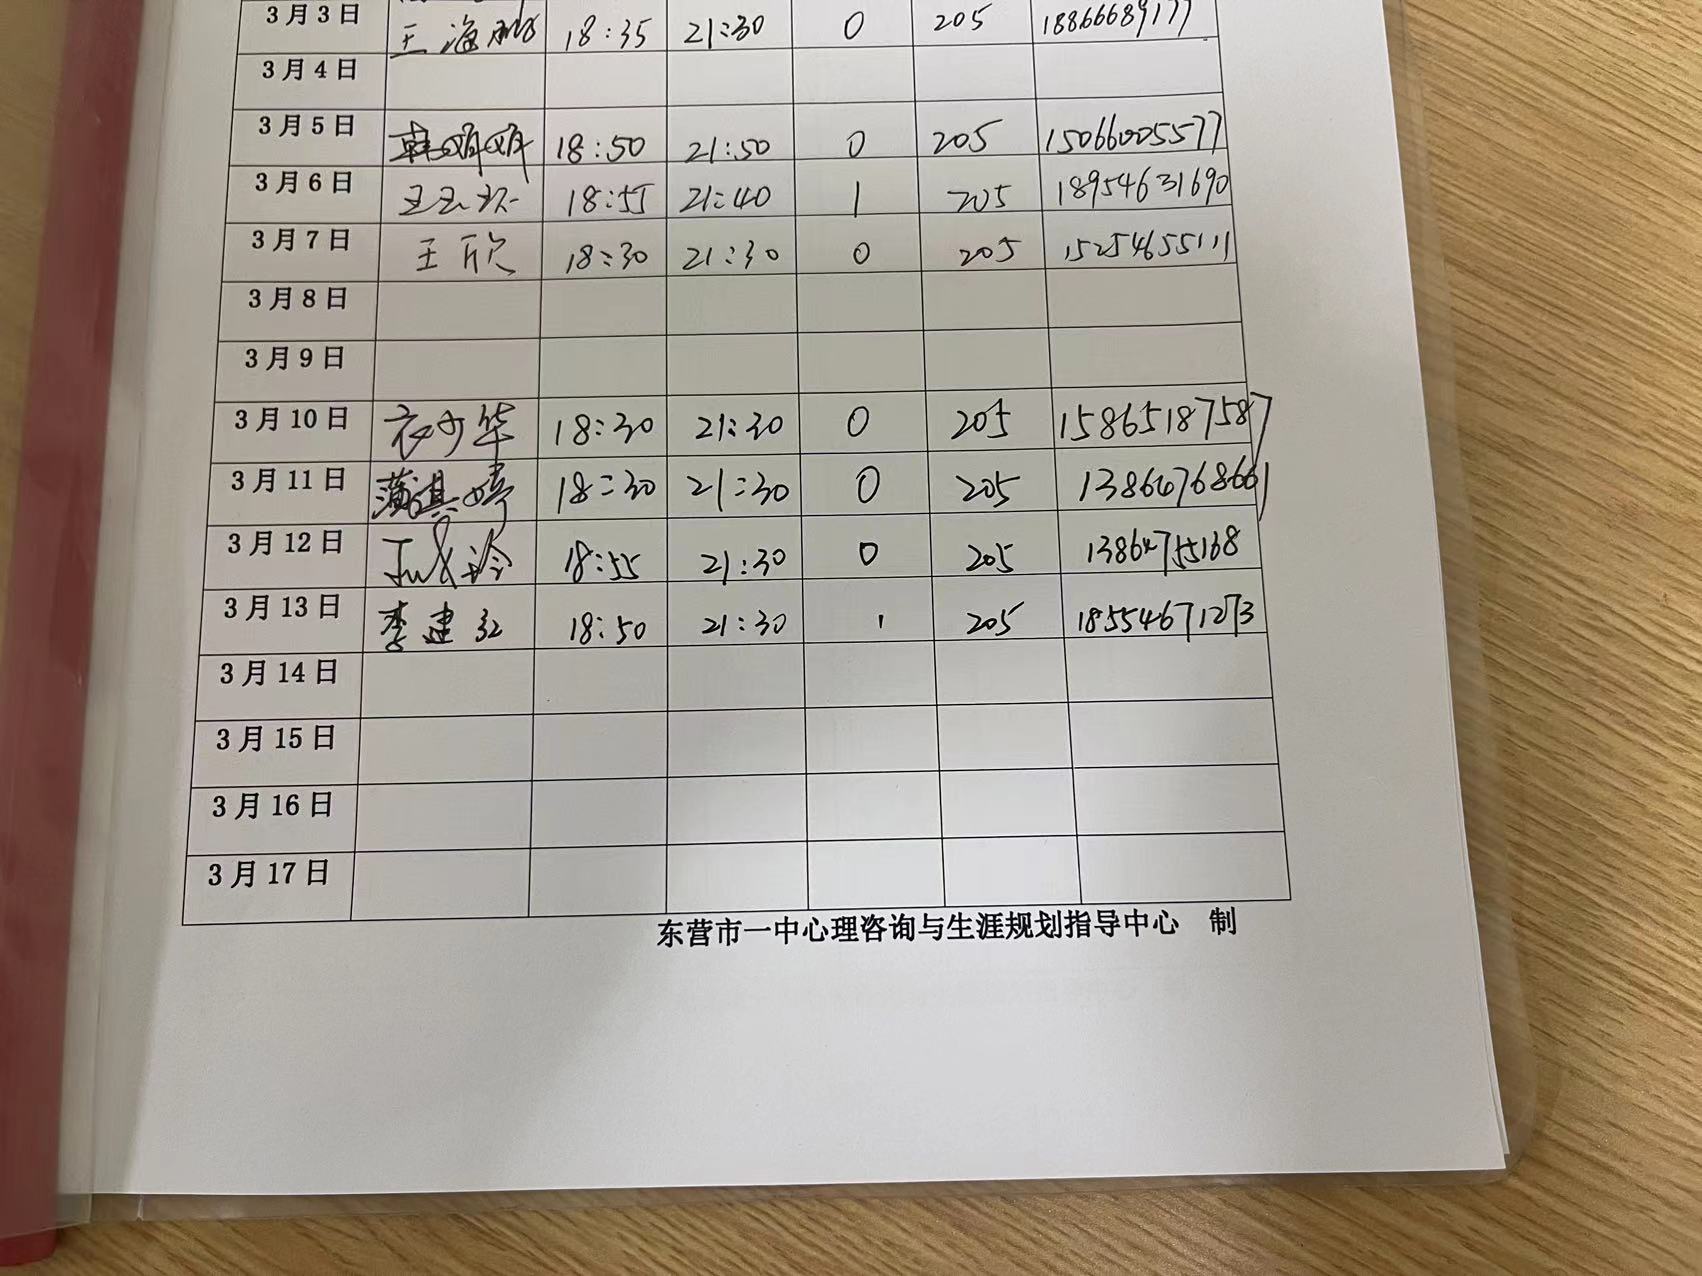 3月3日 王海鹏 18:35 21:30 0 205 18866689177
3月4日
3月5日 韩明明 18:50 21:50 0 205 15066005577
3月6日 王玉环 18:55 21:40 1 205 18954631690
3月7日 王欣 18:30 21:30 0 205 15254655111
3月8日
3月9日
3月10日 衣少华 18:30 21:30 0 205 15865187587
3月11日 蒲淇婷 18:30 21:30 0 205 13864768661
3月12日 18:55 21:30 0 205 13864755168
3月13日 李建红 18:50 21:30 1 205 18554671273
3月14日
3月15日
3月16日
3月17日
东营市一中心理咨询与生涯规划指导中心 制